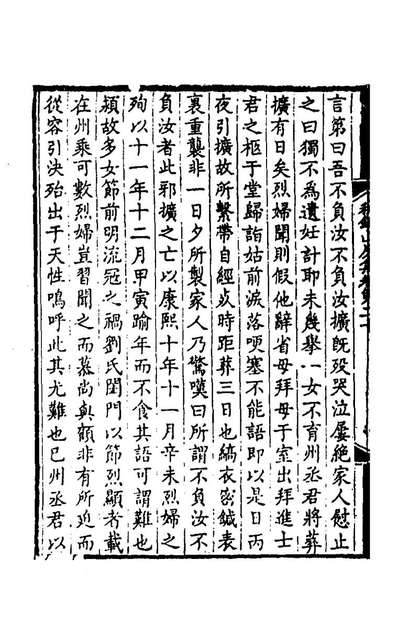 言第曰吾不負汝不負汝擴旣歿哭泣屢絕家人慰止
之曰獨不為遺妊計耶未幾舉一女不育州丞君將葬
擴有日矣烈婦聞則假他辭省母拜母于室出拜進士
君之柩于堂歸詣姑前淚落哽塞不能語即以是日丙
夜引擴故所繫帶自經死時距葬三日也縞衣密鍼表
裏重襲非一日夕所製家人乃驚嘆曰所謂不負汝不
負汝者此邪擴之亡以康熙十年十一月辛未烈婦之
殉以十一年十二月甲寅踰年而不食其語可謂難也
潁故多女節前明流冦之禍劉氏閨門以節烈顯者載
在州乘可數烈婦豈習聞之而慕尚與顧非有所迫而
從容引決殆出于天性嗚呼此其尤難也已州丞君以